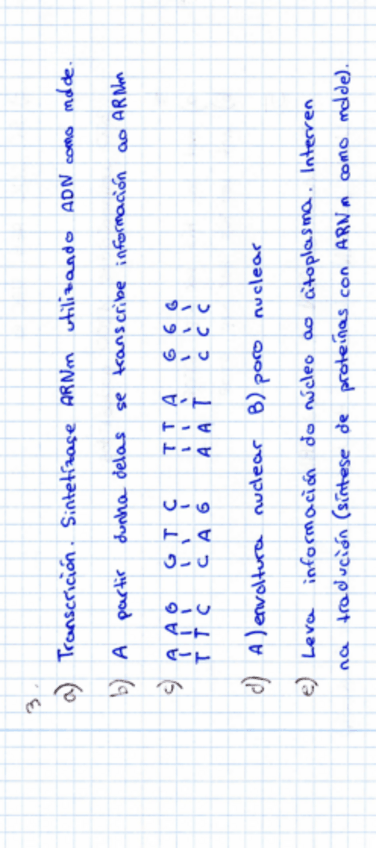 3.
a) Transcrición. Sintetízase ARNm utilizando ADN como molde.
b) A partir dunha delas se transcribe información ao ARNm
c) A A G G T C T T A G G G
T T C C A G A A T C C C
d) A) envoltura nuclear B) poro nuclear
e) Leva información do núcleo ao citoplasma. Interven
na tradución (síntese de proteínas con ARNm como molde).